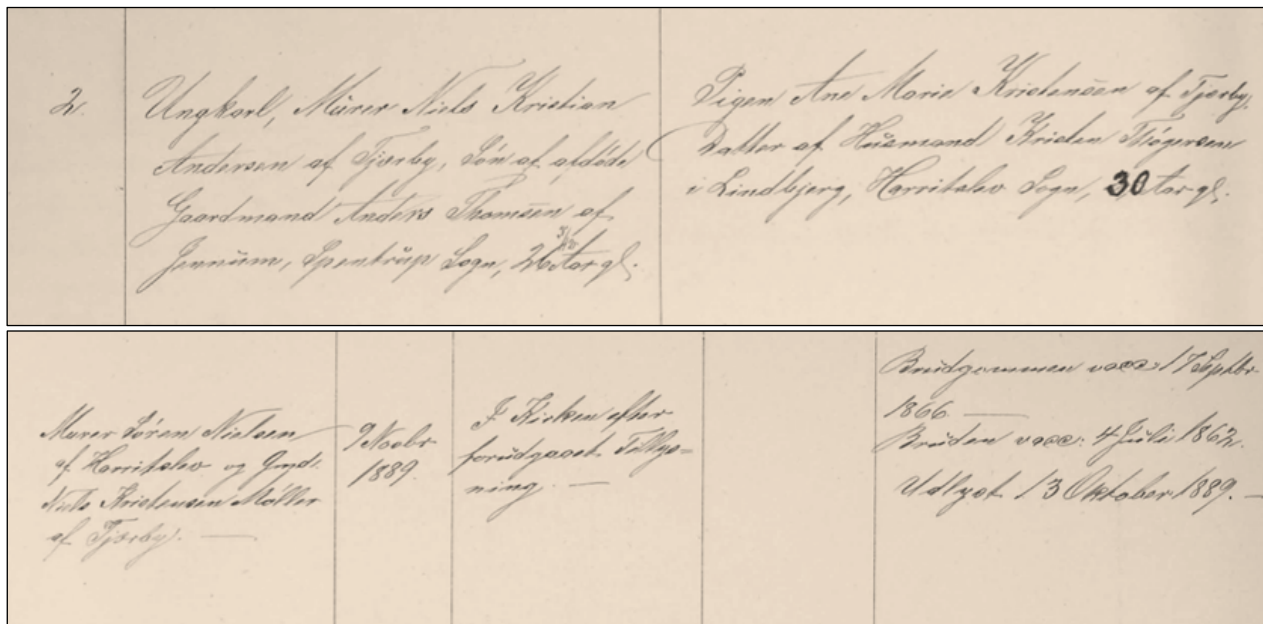 2.
Ungkarl, Murer Niels Kristian
Andersen af Tjærby, Søn af afdøde
Gaardmand Anders Thomsen af
Jennum, Spentrup Sogn, 26 Aar gl.
Pigen Ane Marie Kristensen af Tjærby,
Datter af Husmand Kristen Thøgersen
i Lindbjerg, Harritslev Sogn, 30 Aar gl.
Murer Søren Nielsen
af Harritslev og Gmd.
Niels Kristensen Møller
af Tjærby. —
9 Novbr
1889.
I Kirken efter
forudgaaet Tillys=
ning. —
Brudgommen vacc: 17 Septbr
1866. —
Bruden vacc: 4 Juli 1862.
Udlyst 13 Oktober 1889. —